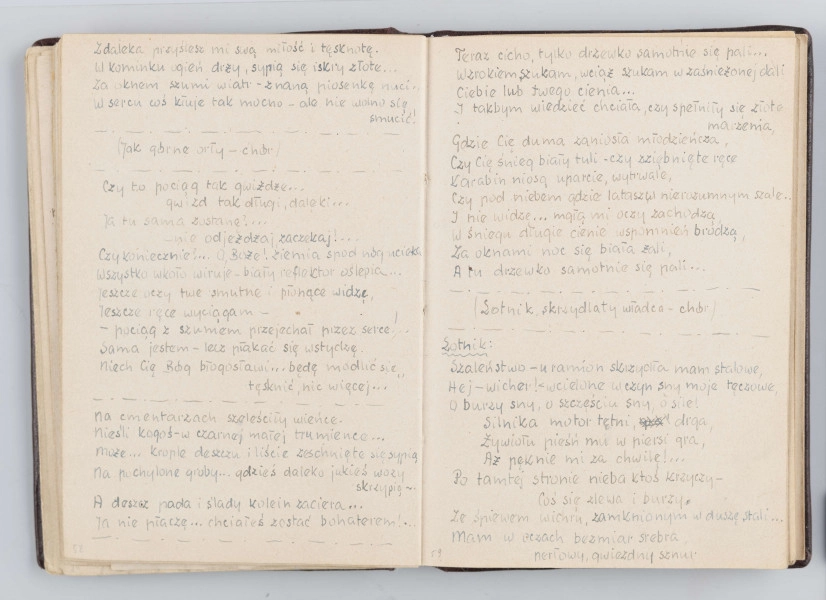 Zdaleka przyślesz mi swą miłość i tęsknotę.
W kominku ogień drży, sypią się iskry złote...
Za oknem szumi wiatr - znaną piosenkę nuci..
W sercu coś kłuje tak mocno - ale nie wolno się
smucić!
(Jak górne orły - chór)
Czy to pociąg tak gwiżdże...
gwizd tak długi, daleki...
Ja tu sama zostanę!...
- nie odjeżdżaj zaczekaj!...
Czy koniecznie!... O, Boże! ziemia spod nóg ucieka
Wszystko wkoło wiruje - biały reflektor oślepia...
Jeszcze oczy twe smutne i płonące widzę,
Jeszcze ręce wyciągam -
- pociąg z szumem przejechał przez serce!
Sama jestem - lecz płakać się wstydzę.
Niech Cię Bóg błogosławi... będę modlić się,
tęsknić, nic więcej...
Na cmentarzach szeleściły wieńce.
Nieśli kogoś - w czarnej małej trumience...
Może... krople deszczu i liście zeschnięte się sypią
Na pochylone groby... gdzieś daleko jakieś wozy
skrzypią -
A deszcz pada i ślady kolein zaciera...
Ja nie płaczę... chciałeś zostać bohaterem!...
Teraz cicho, tylko drzewko samotnie się pali...
Wzrokiem szukam, wciąż szukam w zaśnieżonej dali
Ciebie lub twego cienia...
I takbym wiedzieć chciała, czy spełniły się złote
marzenia,
Gdzie Cię duma zaniosła młodzieńcza,
Czy Cię śnieg biały tuli - czy zziębnięte ręce
Karabin niosą uparcie, wytrwale,
Czy pod niebem gdzie latasz w nierozumnym szale..
I nie widzę... mgłą mi oczy zachodzą
W śniegu długie cienie wspomnień brodzą,
Za oknami noc się biała żali,
A tu drzewko samotnie się pali...
(Lotnik, skrzydlaty władca - chór)
Lotnik:
Szaleństwo - u ramion skrzydła mam stalowe,
Hej - wicher! - wcielone w czyn sny moje tęczowe,
O burzy sny, o szczęściu sny, o sile!
Silnika motor tętni, drga,
Żywiołu pieśń mu w piersi gra,
Aż pęknie mi za chwilę!...
Po tamtej stronie nieba ktoś krzyczy -
Coś się zlewa i burzy.
Ze śpiewem wichru, zamkniętym w duszę stali...
Mam w oczach bezmiar srebra,
perłowy, gwiezdny sznur